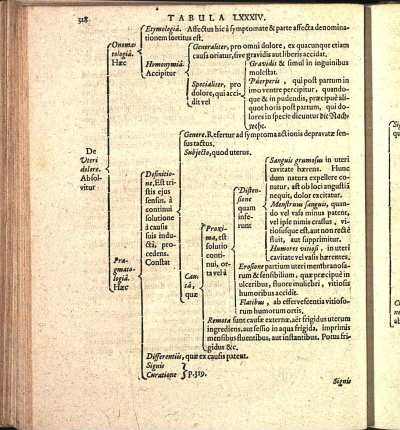 318
TABULA LXXXIV.
De
Uteri
dolore.
Absol-
vitur
Onoma-
tologiâ.
Hæc
Etymologiâ. Affectus hic à symptomate & parte affecta denomina-
tionem sortitus est.
Homonymiâ.
Accipitur
Generaliter, pro omni dolore, ex quacunque etiam
causa oriatur, sive gravidis aut liberis accidat.
Specialiter, pro
dolore, qui acci-
dit vel
Gravidis & simul in inguinibus
molestat.
Puerperis, qui post partum in
imo ventre percipitur, quando-
que & in pudendis, præcipuè ali-
quot horis post partum, qui do-
lores in specie dicuntur die Nach-
wehe.
Prag-
matolo-
giâ.
Hæc
Definitio-
ne. Est tri-
stis ejus
sensus, à
continui
solutione
à causa
sui indu-
ctâ, pro-
cedens.
Constat
Genere. Refertur ad symptoma actionis depravatæ sen-
sus tactus.
Subjecto, quod uterus.
Cau-
sâ,
quæ
Proxi-
ma, est
solutio
conti-
nui, or-
ta vel à
Disten-
sione
quam
infe-
runt
Sanguis grumosus in uteri
cavitate hærens. Hunc
dum natura expellere co-
natur, ast ob loci angustiâ
nequit, dolor excitatur.
Menstruus sanguis, quan-
do vel vasa minus patent,
vel iple nimis crassus, vi-
tiosusque est, aut non rectè
fluit, aut supprimitur.
Humores vitiosi, in uteri
cavitate vel vasis hærentes.
Erosione partium uteri membranosa-
rum & sensibilium, quæ præcipuè in
ulceribus, fluore muliebri, vitiosis
humoribus accidit.
Flatibus, ab effervescentia vitioso-
rum humorum ortis,
Remota sunt causæ externæ, aër frigidus uterum
ingrediens, aut sessio in aqua frigida, imprimis
mensibus fluentibus, aut instantibus. Potus fri-
gidus &c.
Differentiis, quæ ex causis patent.
Signis
Curatione
p.319.
Signis